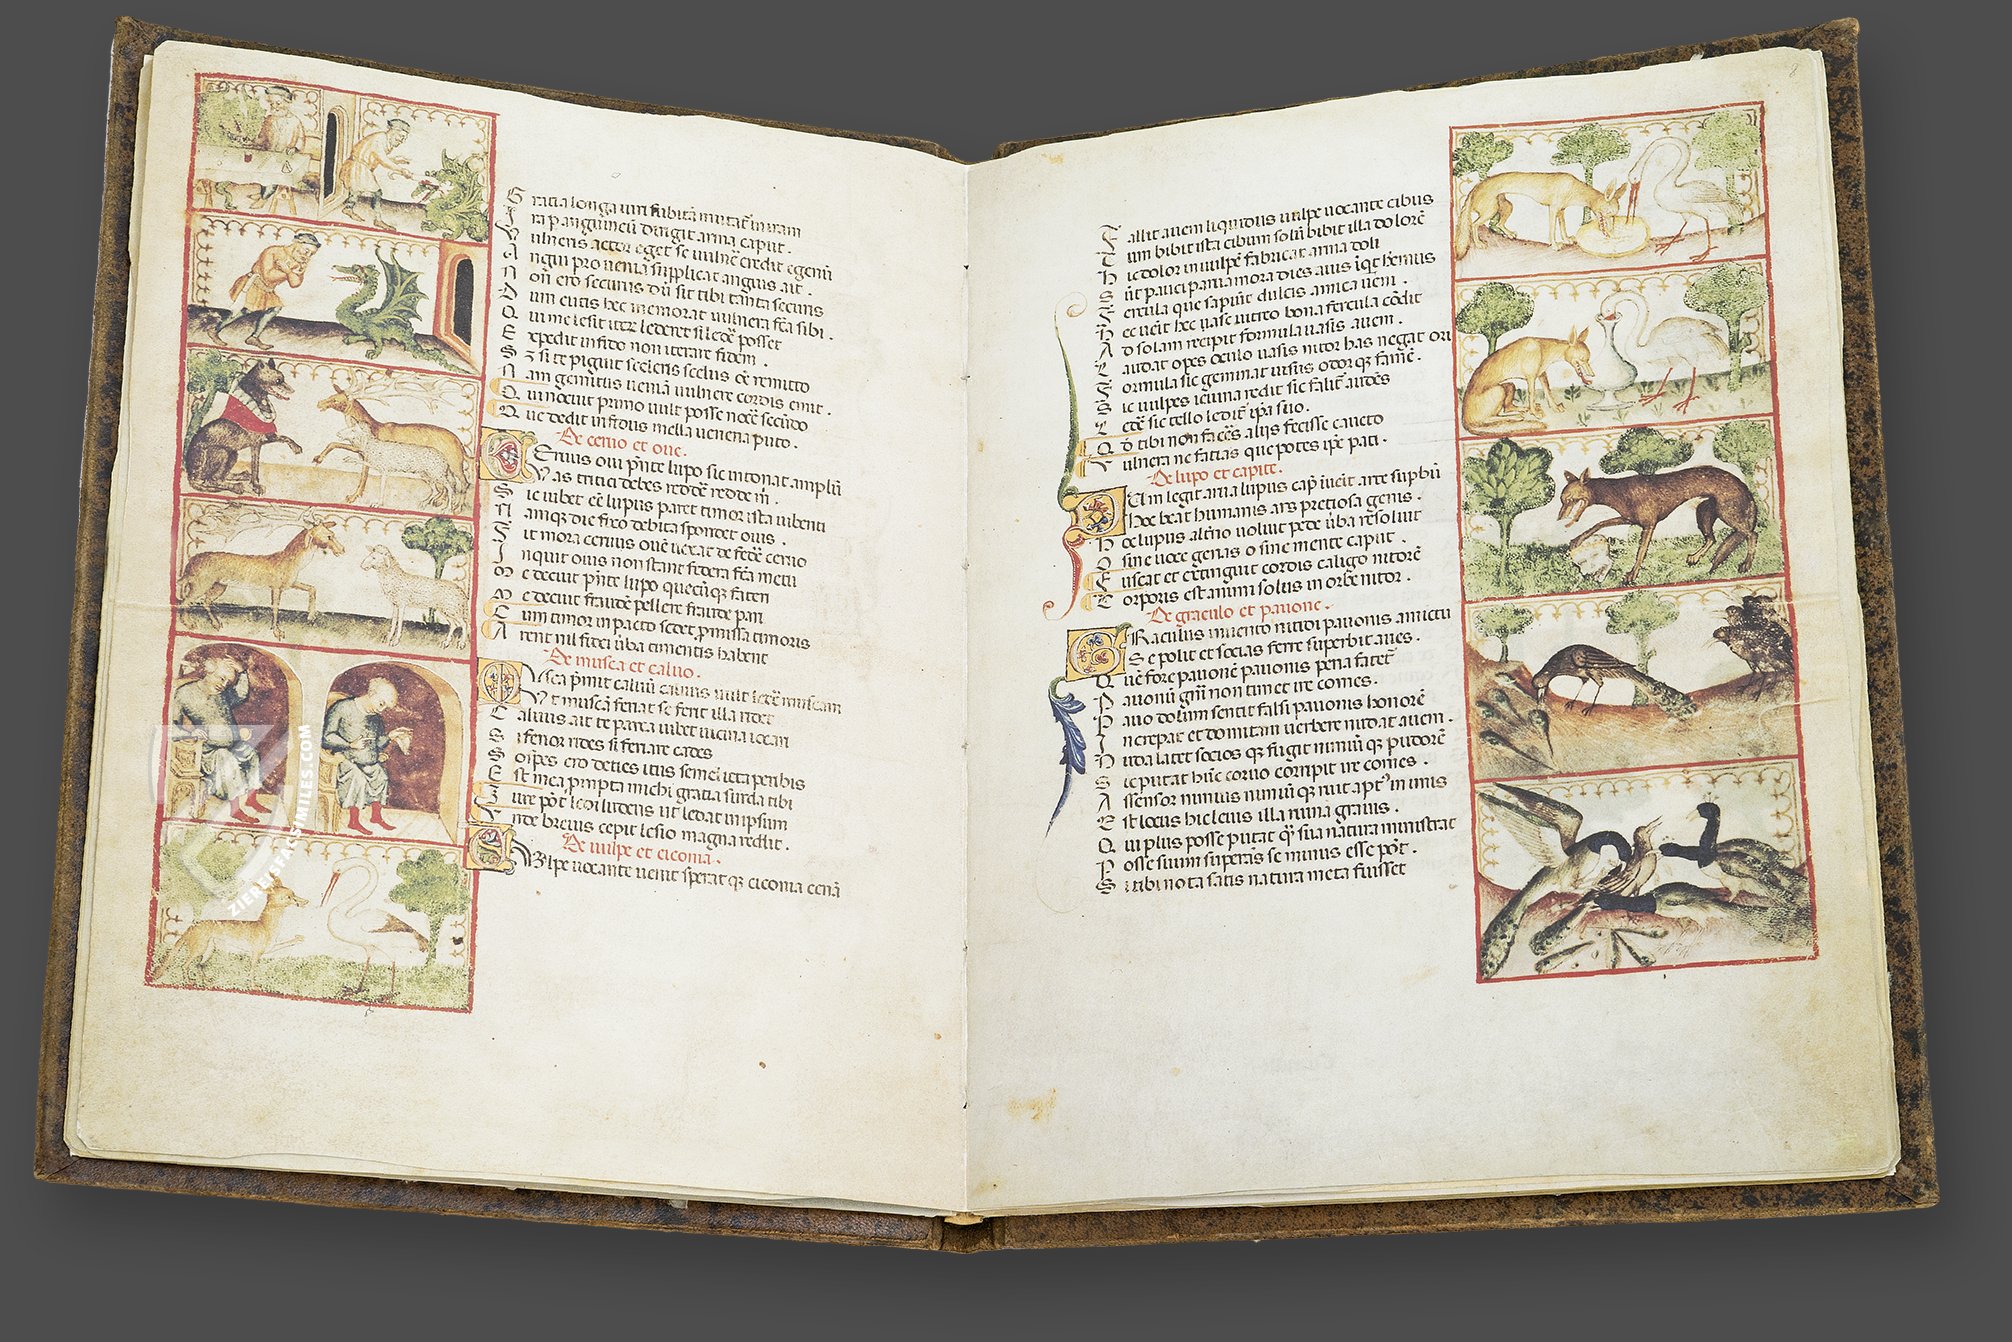 Gratia longa uiri subita mutatur in iram
Vulneris actor eget se uulnere credit egenum
Angui pro uenia supplicat anguis ait.
Non ero securus dum sit tibi tanta securis
Dum cutis hec memorat uulnera fca sibi.
Qui me lesit iterum lederet si ledere posset
Expedit infido non iterare fidem.
Sz si te piguit sceleris scelus ecce remitto
Nam gemitus ueniam uulnere cordis emit.
Qui nocuit primo uult posse nocere secundo
Que dedit infidus mella uenena puto.
De ceruo et oue.
Ceruus oui pnte lupo sic intonat amplum
Vas tritici debes redde redde mi.
Sic iubet ecce lupus paret timor ista iubenti
Namque die ficto debita spondet ouis.
Fit mora ceruus ouem uexat de federe ceruo
Inquit ouis non stant federa fca metu
Me decuit pnte lupo quecunque fateri
Me decuit fraude pellere fraude pari
Cum timor in pacto sedet promissa timoris
Arent nil fidei uerba timentis habent
De musca et caluo.
Musca premit caluum caluus uult ledere muscam
Vt muscam feriat se ferit illa ridet
Caluus ait te parca iubet uicina iocari
Si ferior rides si feriare cades
Sospes ero decies ictus semel icta peribis
Est mea prompta michi gratia surda tibi
Iure potest ledi ludens ut ledat in ipsum
Vnde breuis cepit lesio magna redit.
De uulpe et ciconia.
Vulpe uocante uenit sperat que ciconia cenam
Fallit auem liquidus uulpe uocante cibus
Cum bibit ista cibum solum bibit illa dolorem
Hic dolor in uulpem fabricat arma doli
Fercula que sapiunt dulcis amica ueni.
Hec uenit hec uase uitreo bona fercula condit
Ad solam recipit formula uasis auem.
Laudat opes oculo uasis nitor has negat ori
Formula sic geminat uisus odorque famem.
Sic uulpes ieiuna redit sic fallit fallentes
Quod tibi non faceres aliis fecisse caueto
Vulnera ne facias que potes ipse pati.
De lupo et capite.
Dum legit arua lupus caput inuenit arte superbum
Hoc beat humanis ars preciosa genis.
Hoc lupus alterno uoluit pede uerba resoluit
O sine uoce genas o sine mente caput.
Fuscat et extinguit cordis caligo nitorem
Corporis est animi solus in orbe nitor.
De graculo et pauone.
Graculus inuento nitidi pauonis amictu
Se polit et socias ferre superbit aues.
Quem fore pauonem pauonis pena faretur
Pauonum gregem non timet ire comes.
Pauo dolum sentit falsi pauonis honorem
Increpat et domitam uerbere nudat auem.
Nuda latet socios que fugit minimum que pudorem
Sic putat hunc coruo corripit ire comes.
Assensor nimius nimium que ruit aptus in imis
Est locus hic leuis illa ruina grauis.
Qui plus posse putat quam sua natura ministrat
Posse suum superans se minus esse potest.
Si tibi nota satis natura meta fuisset
8
ZIEREISFACSIMILES.COM